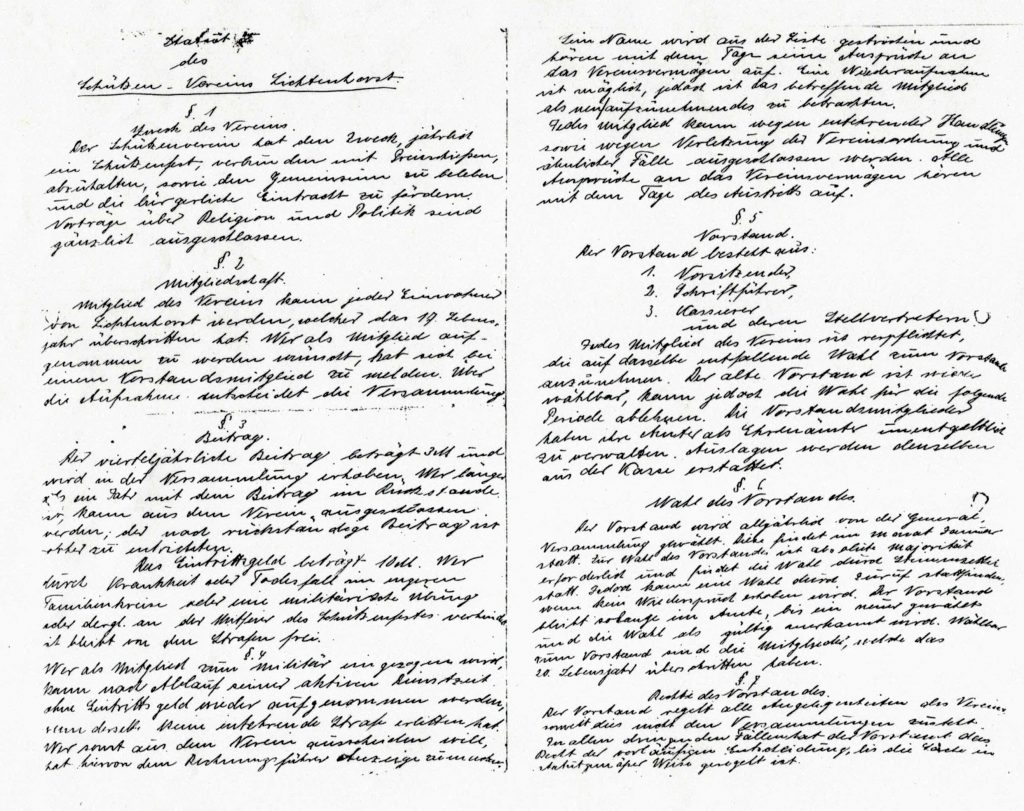 Statut
des
Schützen-Vereins Lichtenhorst.
§ 1
Zweck des Vereins.
Der Schützenverein hat den Zweck, jährlich
ein Schützenfest, verbunden mit Preisschießen,
abzuhalten, sowie den Gemeinsinn zu beleben
und die bürgerliche Eintracht zu fördern.
Vorträge über Religion und Politik sind
gänzlich ausgeschlossen.
§. 2
Mitgliedschaft.
Mitglied des Vereins kann jeder Einwohner
von Lichtenhorst werden, welcher das 17. Lebens-
jahr überschritten hat. Wer als Mitglied auf-
genommen zu werden wünscht, hat sich bei
einem Vorstandsmitglied zu melden. Über
die Aufnahme entscheidet die Versammlung.
§ 3
Beitrag.
Der vierteljährliche Beitrag beträgt und
wird in der Versammlung erhoben. Wer länger
als ein Jahr mit dem Beitrag im Rückstande
ist, kann aus dem Verein ausgeschlossen
werden; der noch rückständige Beitrag ist
aber zu entrichten.
Das Eintrittsgeld beträgt Wer
durch Krankheit oder Todesfall im engeren
Familienkreise oder eine militärische Übung
oder dergl. an der Mitfeier des Schützenfestes verhindert
ist bleibt von den Strafen frei.
§. 4
Wer als Mitglied zum Militär eingezogen wird,
kann nach Ablauf seiner aktiven Dienstzeit
ohne Eintrittsgeld wieder aufgenommen werden,
wenn derselbe keine entehrende Strafe erlitten hat.
Wer sonst aus dem Verein ausscheiden will,
hat hiervon dem Rechnungsführer Anzeige zu machen
Sein Name wird aus der Liste gestrichen und
hören mit dem Tage seine Ansprüche an
das Vereinsvermögen auf. Eine Wiederaufnahme
ist möglich, jedoch ist das betreffende Mitglied
als neu aufzunehmendes zu betrachten.
Jedes Mitglied kann wegen entehrender Handlung
sowie wegen Verletzung der Vereinsordnung und
ähnlicher Fälle ausgeschlossen werden. Alle
Ansprüche an das Vereinsvermögen hören
mit dem Tage des Austritts auf.
§. 5
Vorstand.
Der Vorstand besteht aus:
1. Vorsitzender,
2. Schriftführer,
3. Kassierer
und deren Stellvertretern.
Jedes Mitglied des Vereins ist verpflichtet,
die auf dasselbe entfallende Wahl zum Vorstand
anzunehmen. Der alte Vorstand ist wieder
wählbar, kann jedoch die Wahl für die folgende
Periode ablehnen. Die Vorstandsmitglieder
haben ihre Ämter als Ehrenämter unentgeltlich
zu verwalten. Auslagen werden denselben
aus der Kasse erstattet.
§. 6
Wahl des Vorstandes.
Der Vorstand wird alljährlich von der General-
Versammlung gewählt. Diese findet im Monat Januar
statt. Zur Wahl des Vorstandes ist absolute Majorität
erforderlich und findet die Wahl durch Stimmzettel
statt. Jedoch kann eine Wahl durch Zuruf stattfinden,
wenn kein Wiederspruch erhoben wird. Der Vorstand
bleibt solange im Amte, bis ein neuer gewählt
und die Wahl als gültig anerkannt wird. Wählbar
zum Vorstand sind die Mitglieder, welche das
20. Lebensjahr überschritten haben.
§. 7
Rechte des Vorstandes.
Der Vorstand regelt alle Angelegenheiten des Vereins
soweit dies nicht den Versammlungen zusteht.
In allen dringenden Fällen hat der Vorstand das
Recht der vorläufigen Entscheidung, bis die Sache in
statutgemäßer Weise geregelt ist.